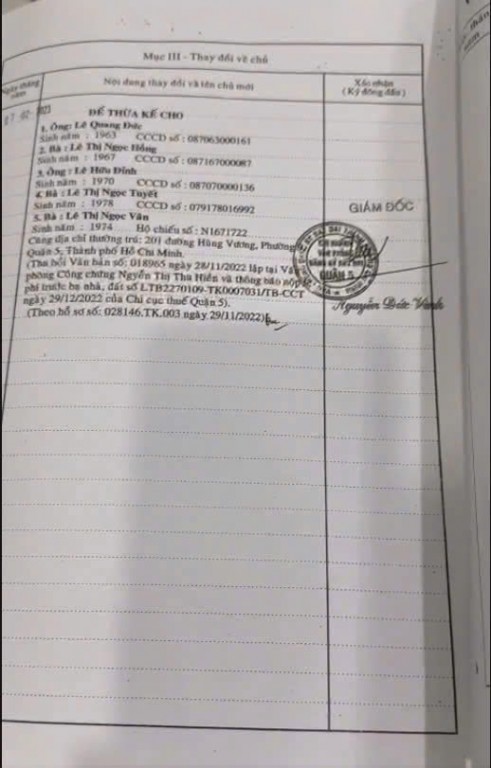 Mục III - Thay đổi về chủ
Ngày tháng năm
Nội dung thay đổi và tên chủ mới
Xác nhận
(Ký đóng dấu)
ĐỂ THỪA KẾ CHO
1. Ông: Lê Quang Đức
Sinh năm : 1963 CCCD số : 087063000161
2. Bà : Lê Thị Ngọc Hồng
Sinh năm : 1967 CCCD số : 087167000087
3. Ông : Lê Hữu Đình
Sinh năm : 1970 CCCD số : 087070000136
4. Bà : Lê Thị Ngọc Tuyết
Sinh năm : 1978 CCCD số : 079178016992
5. Bà : Lê Thị Ngọc Vân
Sinh năm : 1974 Hộ chiếu số : N1671722
Cùng địa chỉ thường trú: 201 đường Hùng Vương, Phường
Quận 5, Thành phố Hồ Chí Minh.
số: 018965 ngày 28/11/2022 lập tại Văn
phòng Công chứng Nguyễn Thị Thu Hiền và thông báo nộp lệ
phí trước bạ nhà, đất số LTB2270109-TK0007031/TB-CCT
ngày 29/12/2022 của Chi cục thuế Quận 5).
(Theo hồ sơ số: 028146.TK.003 ngày 29/11/2022)
GIÁM ĐỐC
QUẬN 5
Nguyễn Đức Vinh